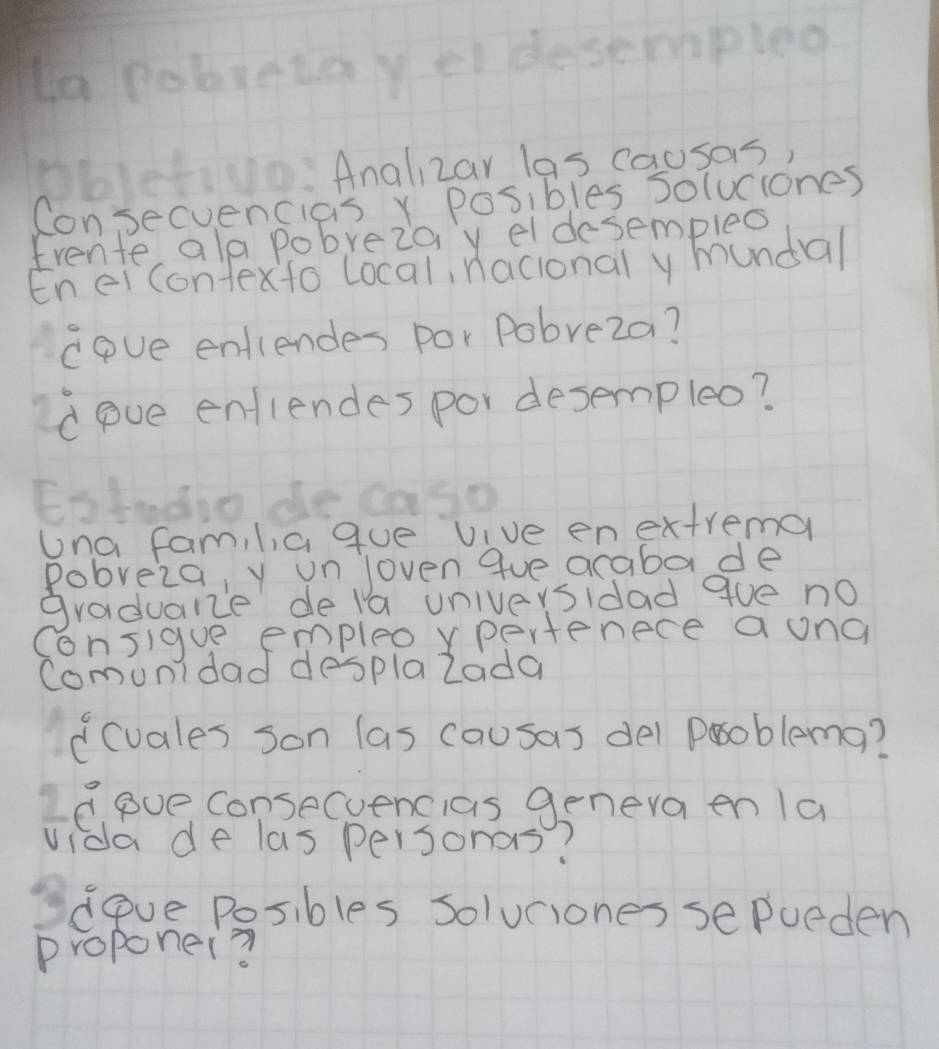 La Pobreza y el desempleo
Objetivo: Analizar las causas,
Consecuencias y Posibles Soluciones
Frente ala Pobreza y el desempleo
En el Contexto Local, Nacional y mundial
1 ¿Que entiendes por Pobreza?
2 ¿Que entiendes por desempleo?
Estudio de caso
Una familia que vive en extrema
Pobreza, y un Joven que acaba de
graduarze de la universidad que no
Consigue empleo y pertenece a una
Comunidad desplazada
1 ¿Cuales son las causas del Problema?
2 ¿Que consecuencias genera en la
vida de las personas?
3 ¿Que Posibles Soluciones se Pueden
Proponer?